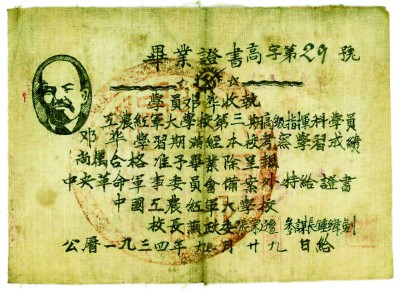 畢業證書高字第29號
學員鄧华收執
工農紅軍大學校第三期高級指揮科學員
鄧华學習期滿經本校考察學習成績
尚屬合格准予畢業除呈報
中央革命軍事委員會備案外特給證書
中國工農紅軍大學校
校長兼政委張宗遜參謀長鍾緯劍
公曆一九三四年九月廿九日給